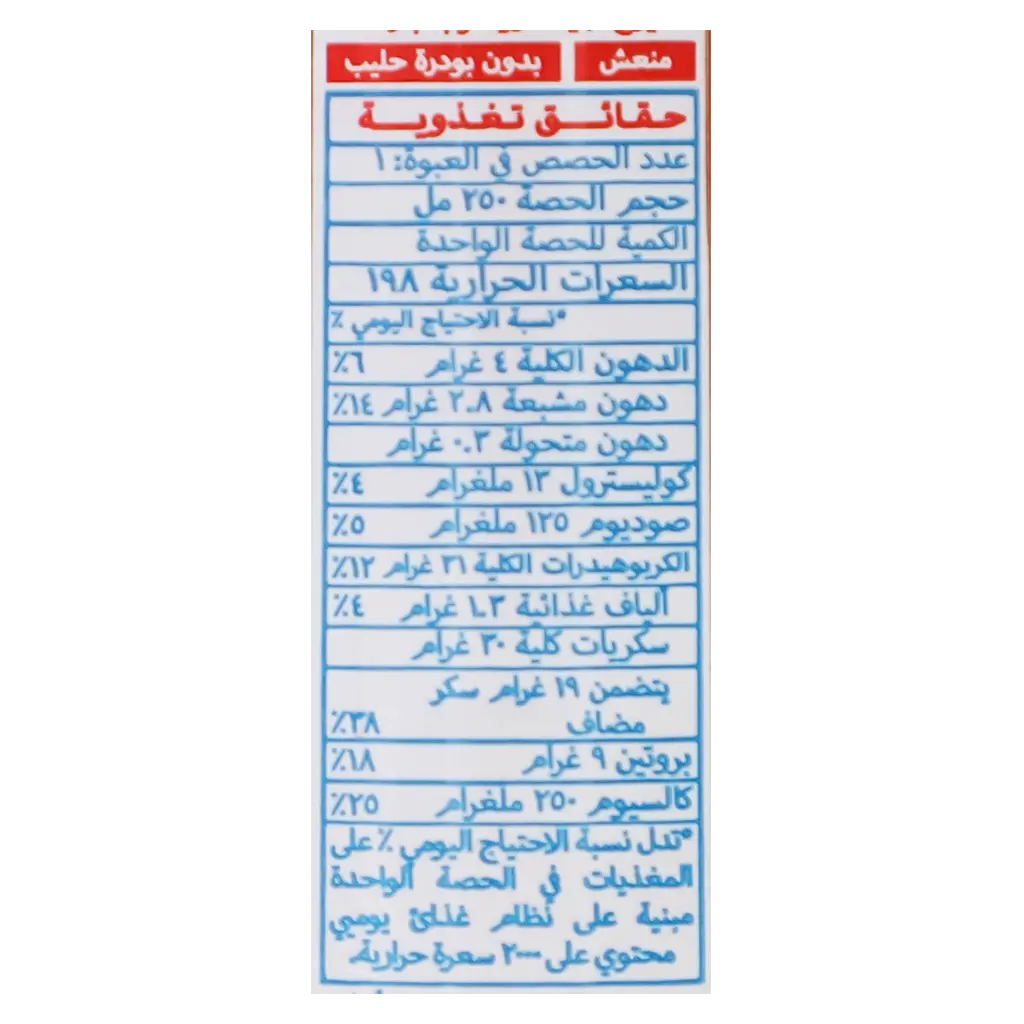 منعش بدون بودرة حليب
حقائق تغذوية
عدد الحصص في العبوة: ١
حجم الحصة ٢٥٠ مل
الكمية للحصة الواحدة
السعرات الحرارية ١٩٨
*نسبة الاحتياج اليومي ٪
الدهون الكلية ٤ غرام ٦٪
دهون مشبعة ٢.٨ غرام ١٤٪
دهون متحولة ٠.٣ غرام
كوليسترول ١٣ ملغرام ٤٪
صوديوم ١٢٥ ملغرام ٥٪
الكربوهيدرات الكلية ٣١ غرام ١٢٪
ألياف غذائية ١.٣ غرام ٤٪
سكريات كلية ٣٠ غرام
يتضمن ١٩ غرام سكر
مضاف ٣٨٪
بروتين ٩ غرام ١٨٪
كالسيوم ٢٥٠ ملغرام ٢٥٪
*تدل نسبة الاحتياج اليومي ٪ على
المغذيات في الحصة الواحدة
مبنية على نظام غذائي يومي
محتوي على ٢٠٠٠ سعرة حرارية.